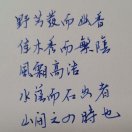 野芳發而幽香
佳木秀而繁陰
風霜高洁
水落而石出者
山間之四時也